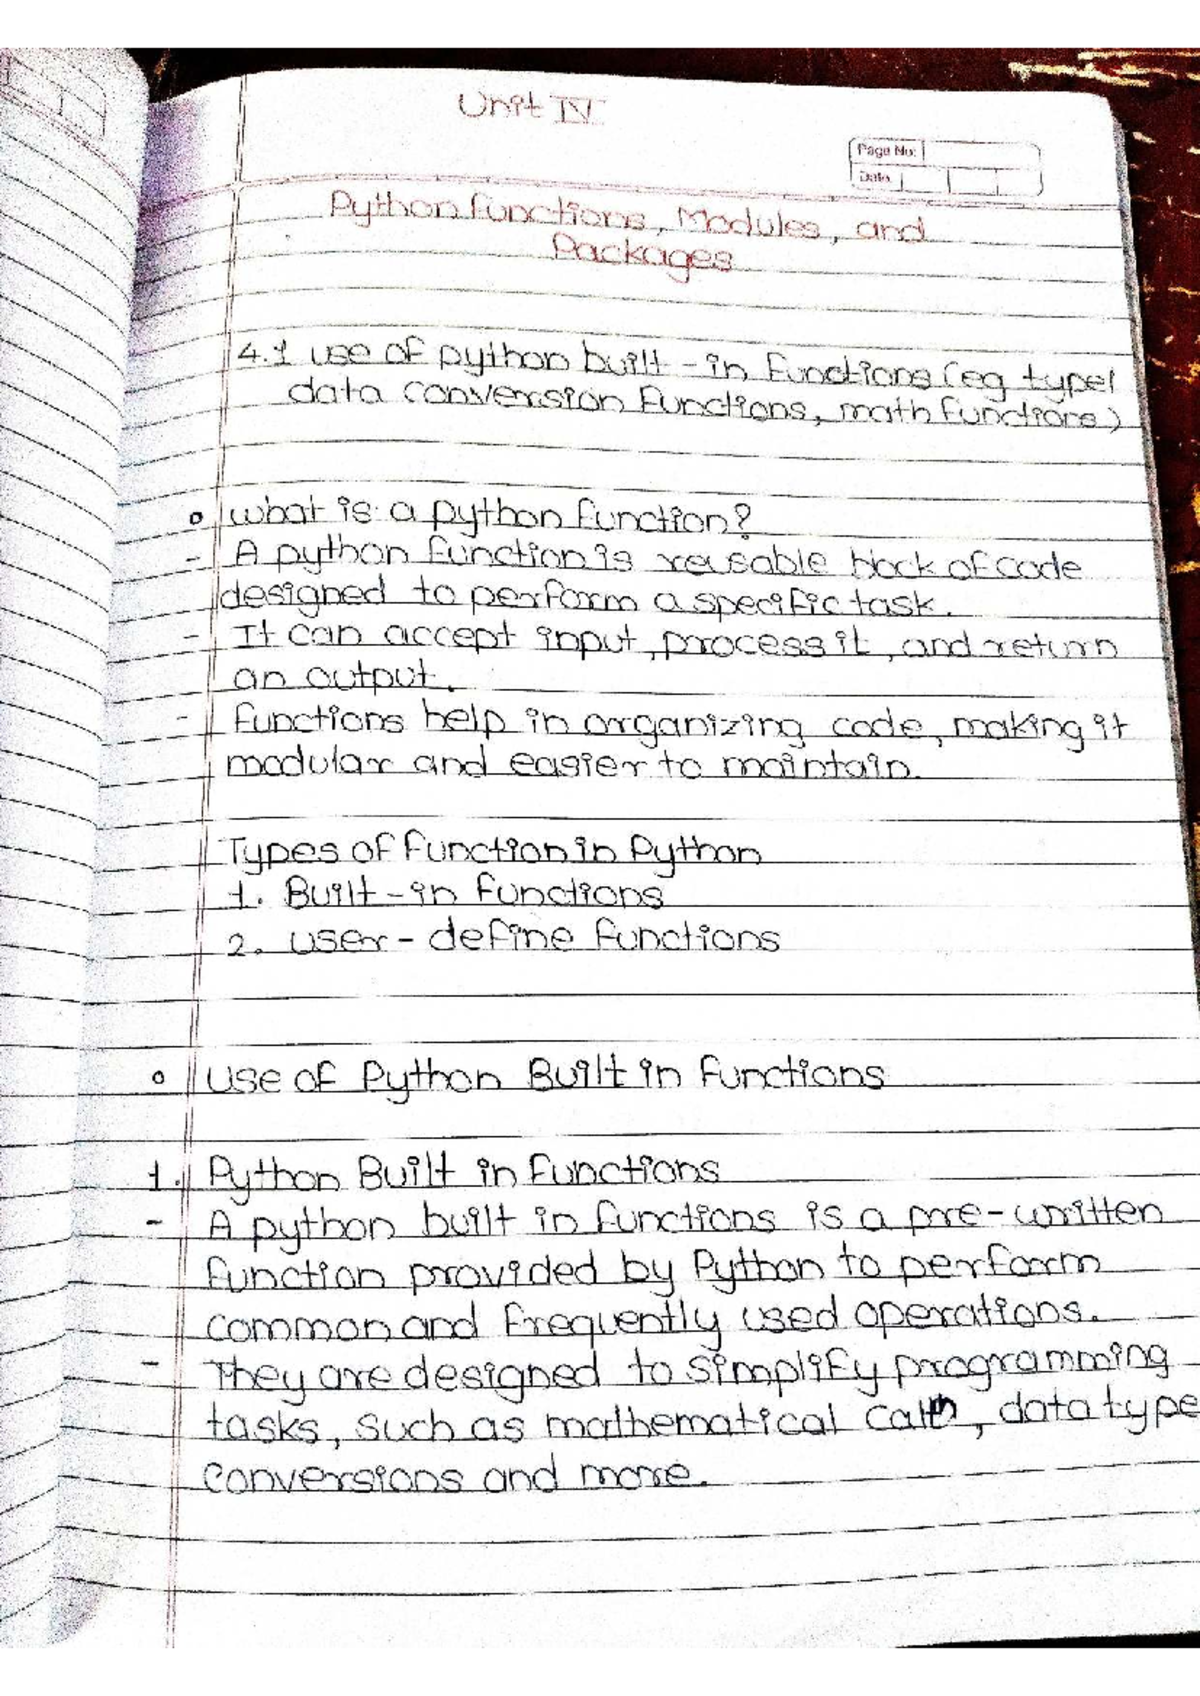 Unit IV
Page No:
Date
Python functions, Modules, and
Packages
4.1 use of python built-in functions (eg type/
data conversion functions, math functions)
what is a python function?
- A python function is reusable block of code
designed to perform a specific task.
- It can accept input, process it, and return
an output.
- functions help in organizing code, making it
modular and easier to maintain.
Types of function in Python
1. Built-in functions
2. user-define functions
use of Python Built in functions
1. Python Built in functions
- A python built in functions is a pre-written
function provided by Python to perform
common and frequently used operations.
- They are designed to simplify programming
tasks, such as mathematical , data type
conversions and more.